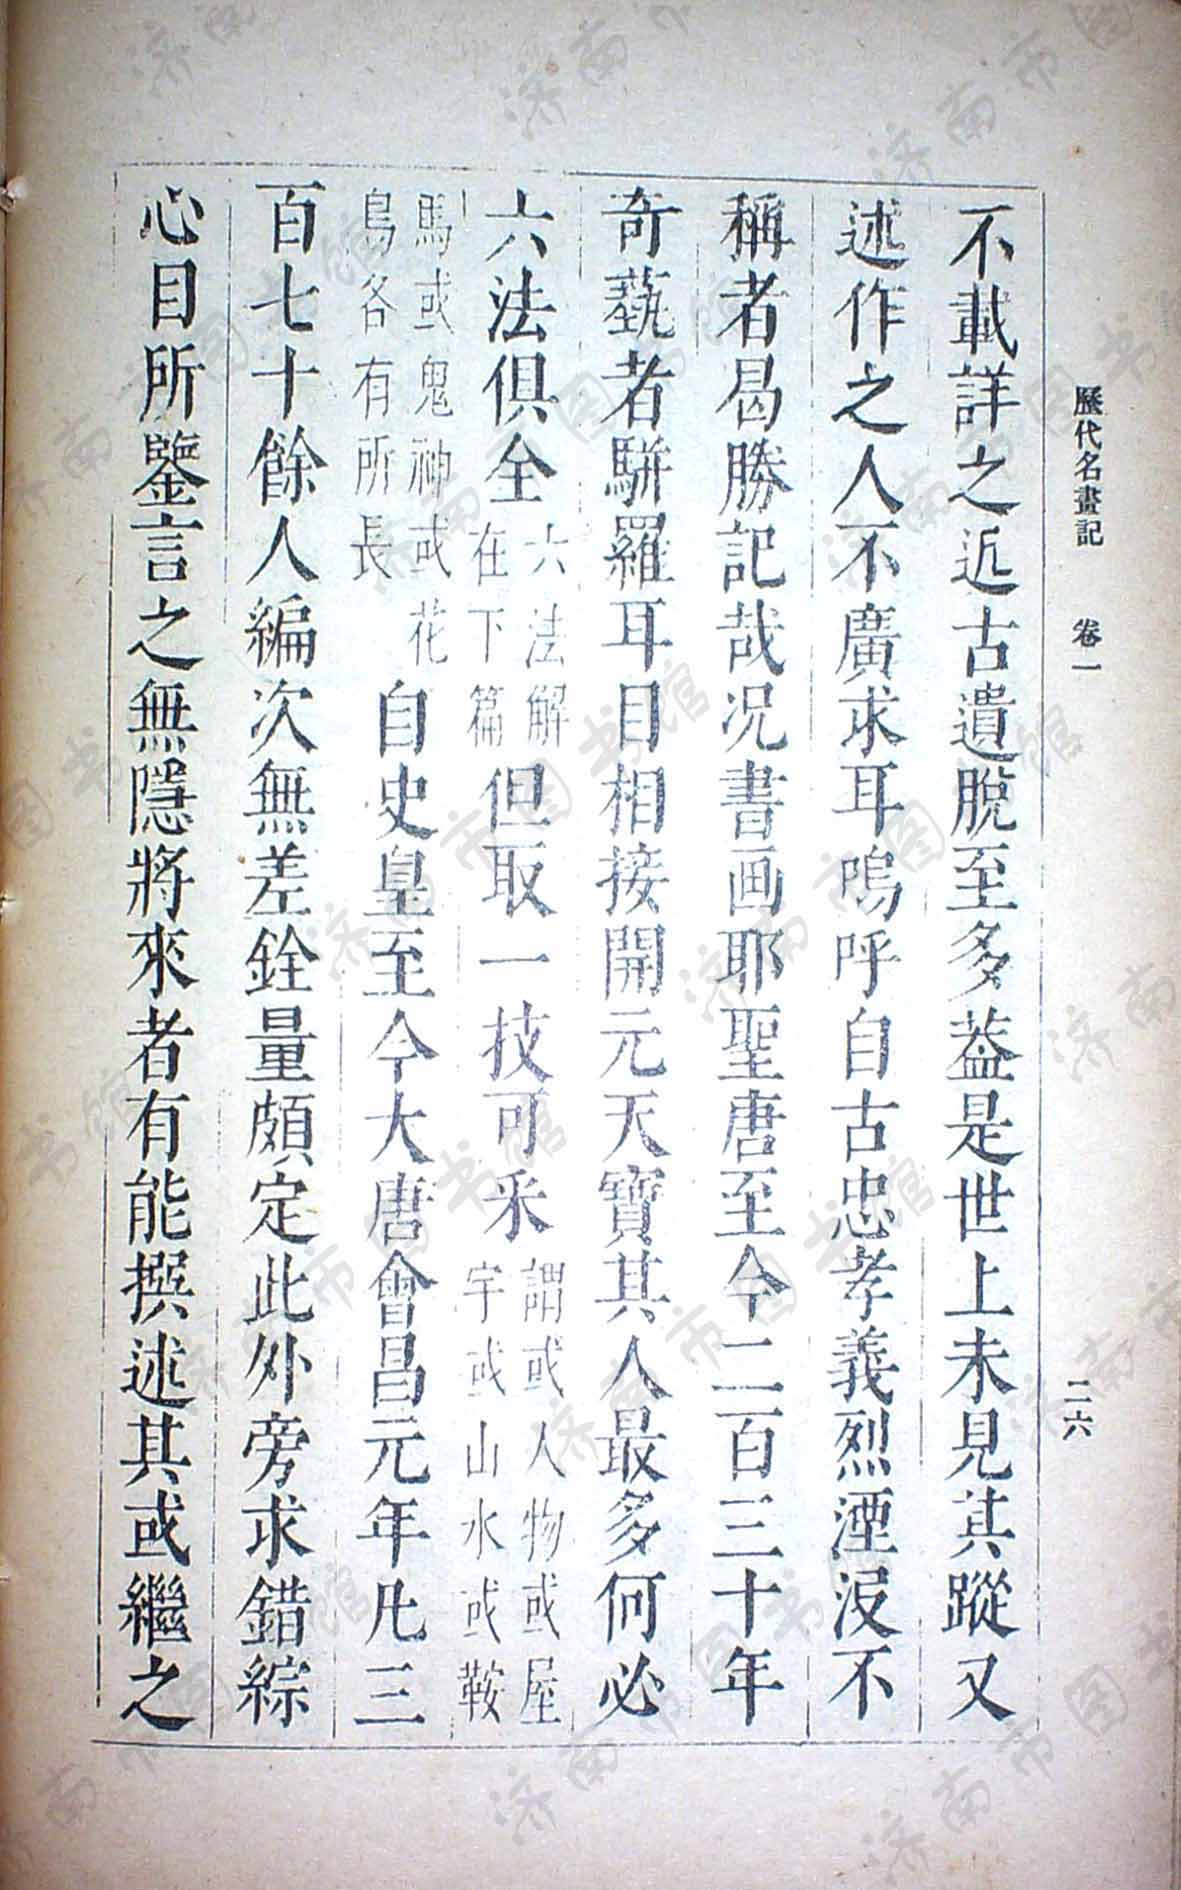 歷代名畫記 卷一 二六
不載詳之近古遺脫至多葢是世上未見其蹤又
述作之人不廣求耳嗚呼自古忠孝義烈湮沒不
稱者曷勝記哉况書画耶聖唐至今二百三十年
奇蓺者駢羅耳目相接開元天寶其人最多何必
六法俱全六法解在下篇但取一技可采謂或人物或屋宇或山水或鞍
馬或鬼神或花鳥各有所長自史皇至今大唐會昌元年凡三
百七十餘人編次無差銓量頗定此外旁求錯綜
心目所鑒言之無隱將來者有能撰述其或繼之
济南市图书馆